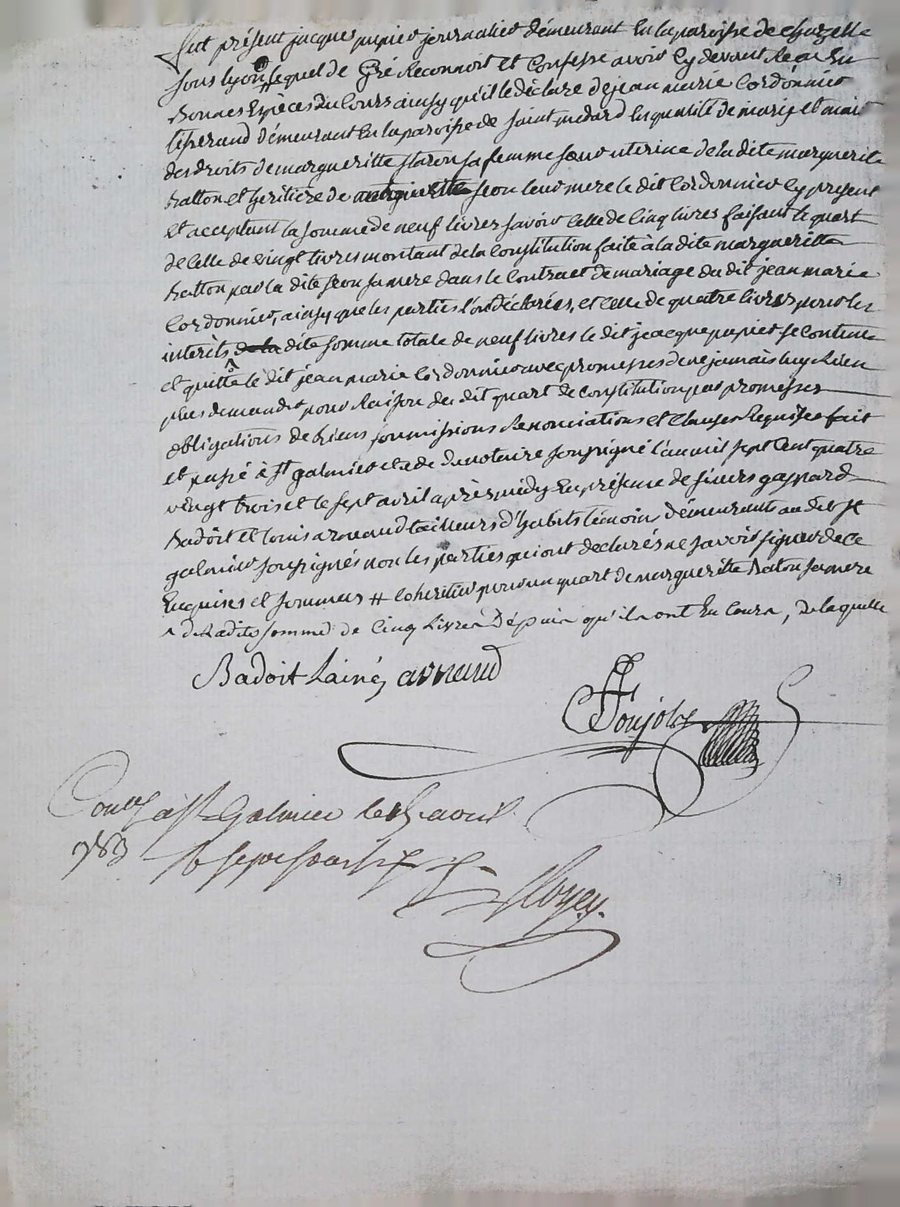 fut présent jacques papier journalier démeurant En la paroisse de chazelle
sous lyon # lequel de Gré Reconnoit et Confesse avoir Cy devant Recu En
Bonnes Espèces du Cours ainsy qu'il le déclare de jean marie Cordonnier
tisserand démeurant En la paroisse de saint medard En qualité de mary et maitre
des droits de margueritte flaron sa femme sœur uterine de la dite margueritte
Ratton et heritière de margueritte jeon leur mere le dit Cordonnier Cy présent
et acceptant la somme de neuf livres savoir Celle de Cinq livres faisant le quart
de Celle de vingt livres montant de la Constitution faite à la dite margueritte
Ratton par la dite jeon sa mere dans le Contract de mariage du dit jean marie
Cordonnier, ainsy que les parties l'ont déclarées, et Celle de quatre livres pour les
intérêts de la dite somme totale de neuf livres le dit jacque papier se Contente
et quitte le dit jean marie Cordonnier avec promesses de ne jamais luy Rien
plus demander pour Raison du dit quart de Constitution par promesses
obligations de biens soumissions Renonciations et Clauses Requises fait
et passé à st galmier etude du notaire soussigné l'an mil sept Cent quatre
vingt trois et le sept avril après midy En présence de sieurs gaspard
Badoit et louis arnaud tailleurs d'habits témoins démeurants au dit st
galmier soussignés non les parties qui ont declarés ne savoir signer de ce
Enquises et sommées # Coheritier pour un quart de margueritte Raton sa mere
^ de ladite somme de Cinq Livres Dépuis qu'ils ont Eu Cours, de laquelle
Badoit Lainé, arnaud
Ponjolz
Con^lé a st Galmier le avril
783